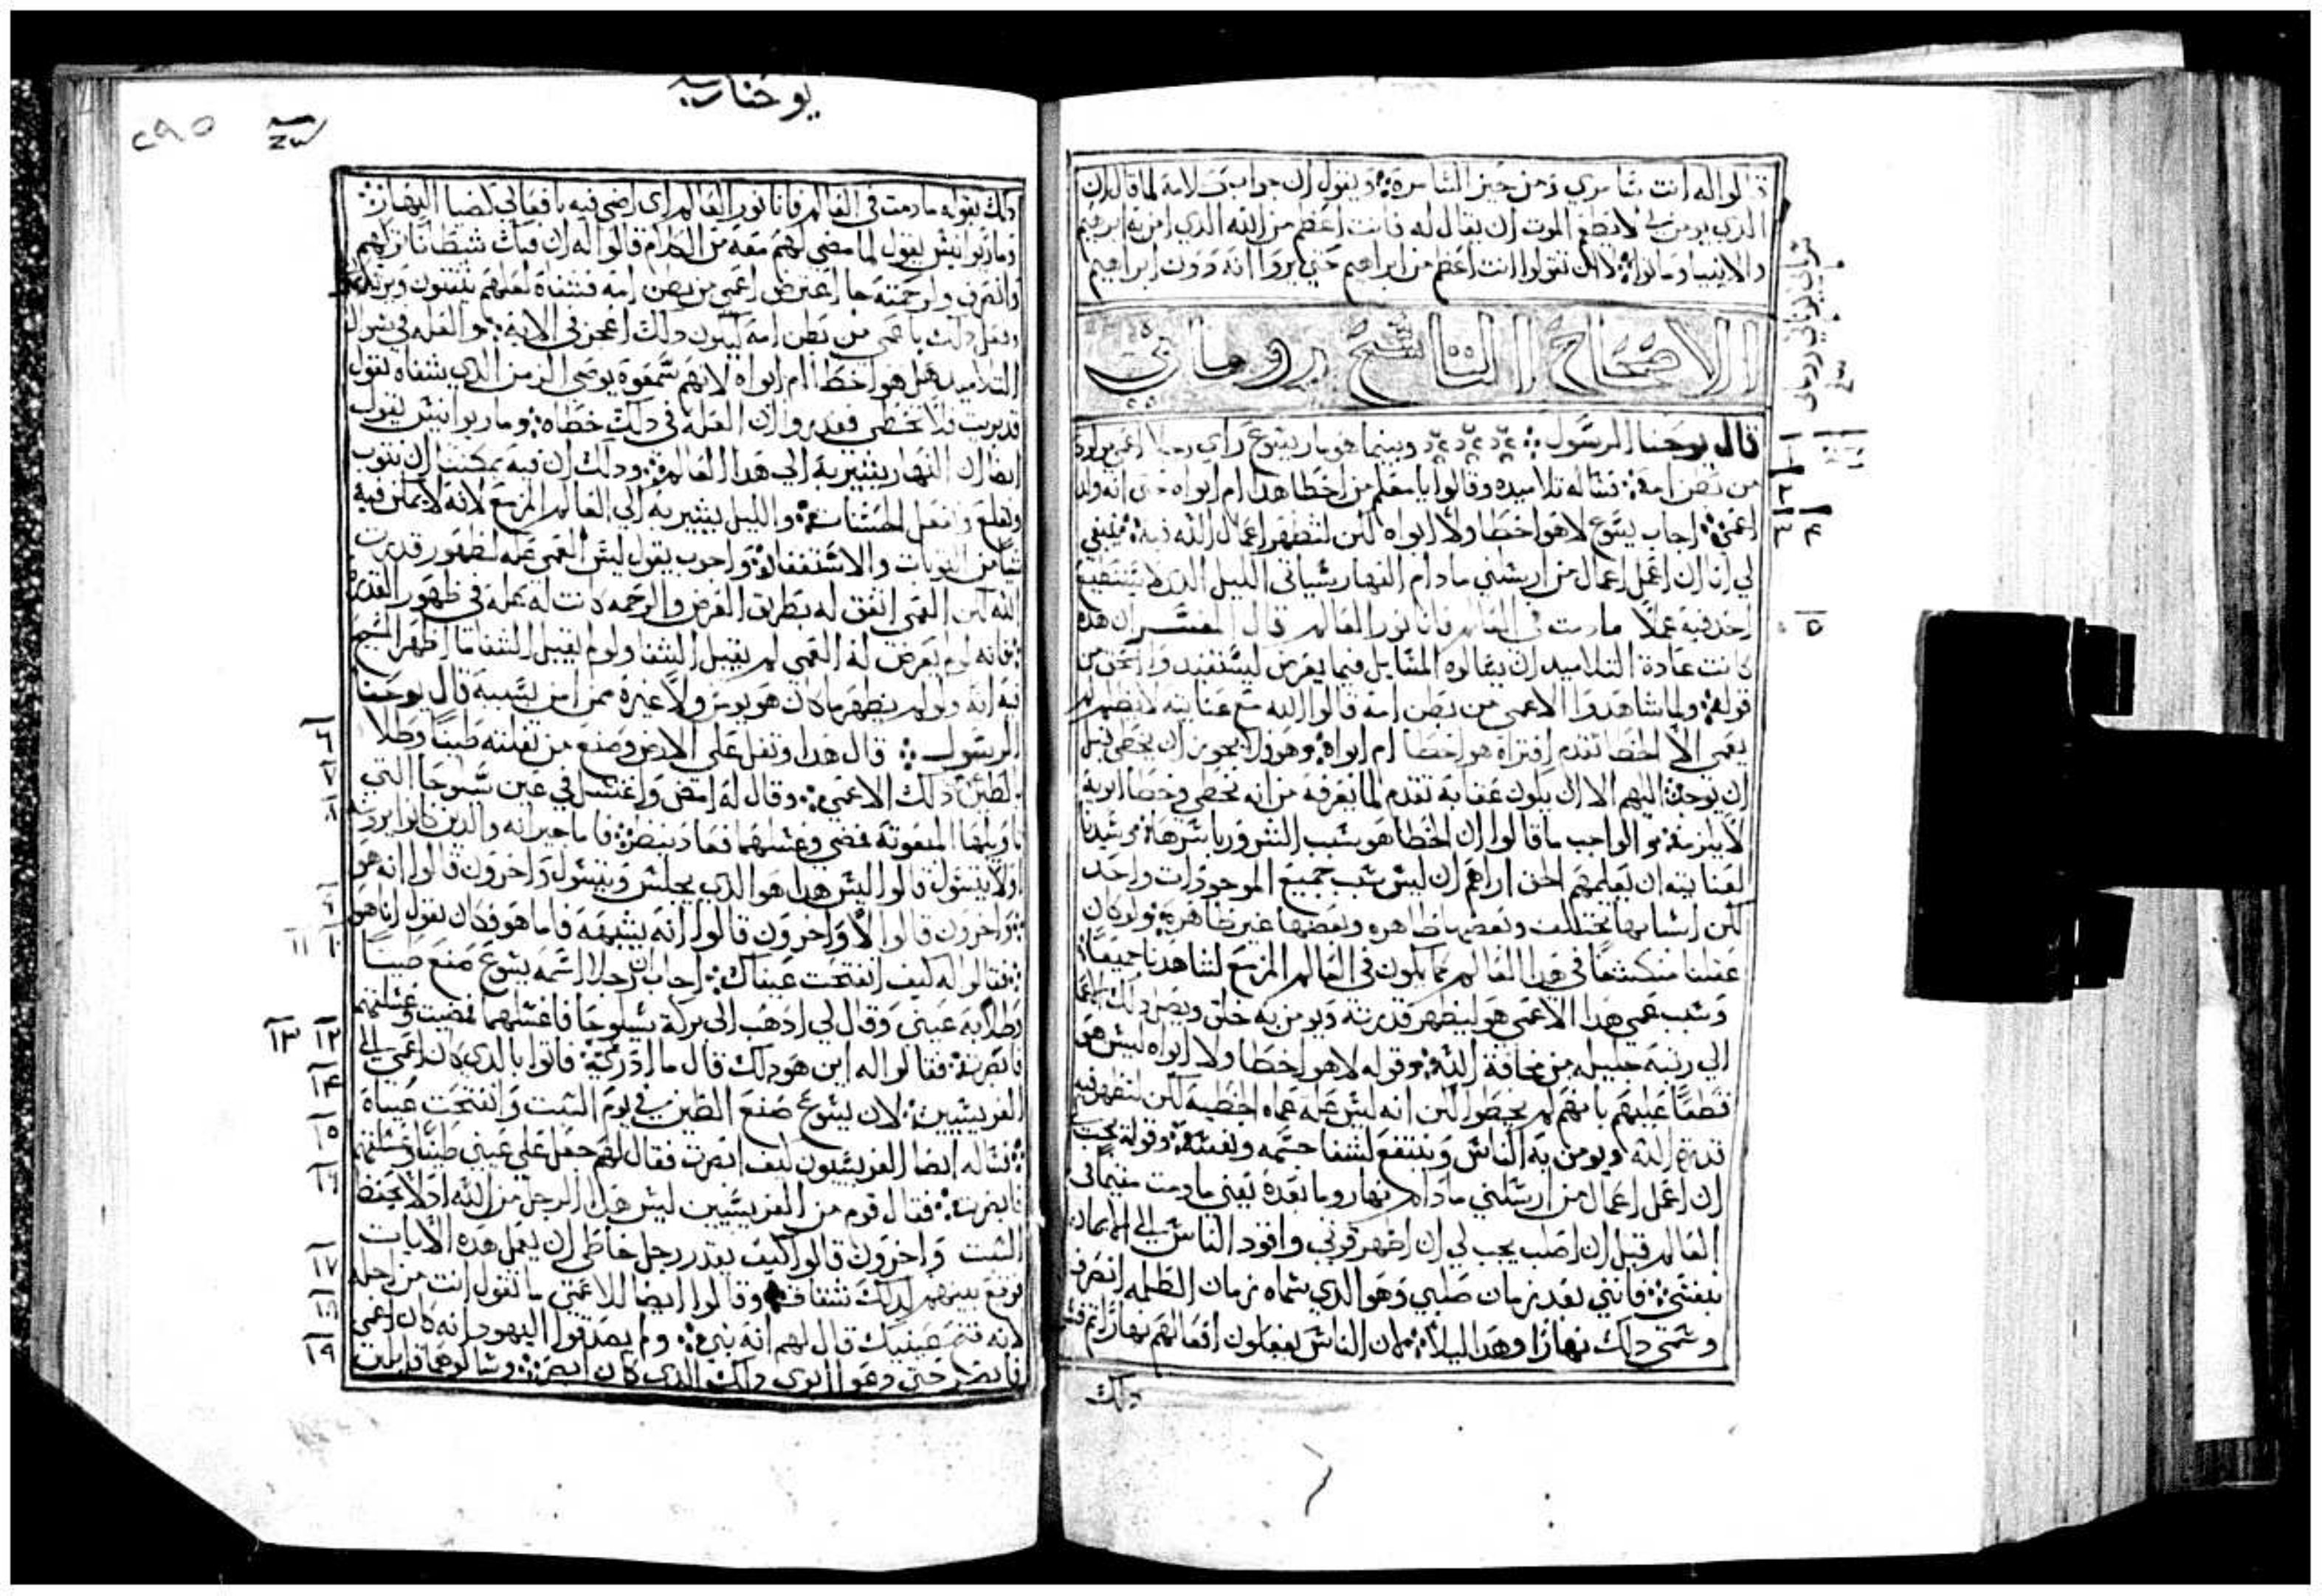 قالوا له انت سامري ومن حيز السامرة ويقول ان جواب كلامه لما قال ان
الذي يومن بي لا يطعم الموت ان يقال له فانت اعظم من الله الذي امن به ابرهيم
والانبيا وماتوا لا ان تقولوا انت اعظم من ابراهيم حتي يروا انه دون ابراهيم
الاصحاح التاسع روماني
قال يوحنا الرسول وبينما هو مار يسوع راي رجلا اعمي مولود
من بطن امه فساله تلاميذه وقالوا يا معلم من اخطا هذا ام ابواه حتي انه ولد
اعمي اجاب يسوع لا هو اخطا ولا ابواه لكن لتظهر اعمال الله فيه ينبغي
لي انا ان اعمل اعمال من ارسلني ما دام النهار سياتي الليل الذي لا يستطيع
احد فيه عملا ما دمت في العالم فانا نور العالم قال المفسر ان هذه
كانت عادة التلاميد ان يسالوه المسايل فيما يعرض ليستفيد والحق من
قوله ولما شاهدوا الاعمي من بطن امه قالوا اليه مع عنايته لا يظلم
يعمي الا لخطا تقدم افتراه هو اخطا ام ابواه وهو لا يجوز ان يخطي قبل
ان يوجد اللهم الا ان يكون عقابه تقدم لما يعرفه من انه يخطي وخطا ابويه
لا يلزمه والواجب ما قالوا ان الخطا هو سبب الشرور باسرها سيدنا
لعنايته ان يعلمهم الحق اراهم ان ليس سبب جميع الموجودات واحد
لكن اسبابها تختلف وبعضها ظاهره وبعضها غير ظاهره ولو كان
عقلنا منكشفا في هذا العالم كما يكون في العالم المزمع لشاهدنا جميعا
وسبب عمي هذا الاعمي هو ليظهر قدرته ويومن به خلق ويصل ذلك
الي رتبه جليله من مخافة الله وقوله لا هو اخطا ولا ابواه ليس هو
قطعا عليهم بانهم لم يخطوا لكن انه ليس علة عماه الخطيه لكن لتظهر فيه
قدرة الله ويومن به الناس وينتفع لشفا جسمه ونفسه وقوله يجب
ان اعمل اعمال من ارسلني ما دام نهار وما بعده يعني ما دمت مقيما في
العالم قبل ان اصلب يجب لي ان اظهر قوتي واقود الناس الي الايمان
بنفسي فانني بعد زمان صلبي وهو الذي سماه زمان الظلمه انصرف
وسمي ذلك نهارا وهذا ليلا لان الناس يفعلون افعالهم نهارا
ذلك
يوحنا
٢٩٥
ذلك بقوله ما دمت في العالم فانا نور العالم اي اضي فيه بافعالي كضيا النهار
ومار يوانيس يقول لما مضي لهم معه من الكلام قالوا له ان فيك شيطانا تركهم
وانصرف ولرحمته اعترض اعمي من بطن امه فشفاه لعلهم
وفعل ذلك باعمي من بطن امه ليكون ذلك اعجز في الايه والعله في سوال
التلاميد هل هو اخطا ام ابواه لانهم سمعوه يوصي الزمن الذي شفاه يقول
قد بريت فلا تخطي فقدروا ان العله في ذلك خطاه ومار يوانيس يقول
ايضا ان النهار يشير به الي هذا العالم وذلك ان فيه يمكننا ان نتوب
ونفعل الحسنات والليل يشير به الي العالم المزمع لانه لا يمكن فيه
شيا من التوبات والاستغفار واخرون يقول ليس العمي علة لظهور قدرت
الله لكن العمي اتفق له بطريق العرض والرحمه كانت له علة في ظهور القدره
فانه لو لم يعرض له العمي لم يقبل الشفا ولو لم يقبل الشفا ما اظهر السيح
فيه ايه ولو لم يظهر ما كان هو يومن ولا غيره ممن امن بسببه قال يوحنا
الرسول قال هذا وتفل علي الارض وصنع من تفلته طينا وطلا
بالطين ذلك الاعمي وقال له امض واغتسل في عين سلوحا التي
تاويلها المبعوثه فمضي وغسلهما فعاد ينظر فاما جيرانه والذين كانوا يرونه
اولا يتسول قالوا اليس هذا هو الذي يجلس ويتسول واخرون قالوا انه هو
واخرون قالوا لا واخرون قالوا انه يشبهه فاما هو فكان يقول انا هو
فقالوا له كيف انفتحت عيناك اجاب ان رجلا اسمه يسوع صنع طينا
وطلا به عيني وقال لي اذهب الي بركة سلوحا فاغسلهما فمضيت وغسلتهما
فابصرت فقالوا له اين هو ذلك قال ما ادركه فاتوا بالذي كان اعمي الي
الفريسيين لان يسوع صنع الطين في يوم السبت وانفتحت عيناه
فساله ايضا الفريسيون كيف ابصرت فقال لهم جعل علي عيني طينا وغسلتهما
فابصرت فقال قوم من الفريسيين ليس هذا الرجل من الله اذ لا يحفظ
السبت واخرون قالوا كيف يقدر رجل خاطي ان يعمل هذه الايات
فوقع بينهم لذلك شقاق وقالوا ايضا للاعمي ما تقول انت من اجله
لانه فتح عينيك قال لهم انه نبي ولم يصدقوا اليهود انه كان اعمي
فابصر حتي دعوا ابوي ذلك الذي كان ابصر وسالوهما قايلين